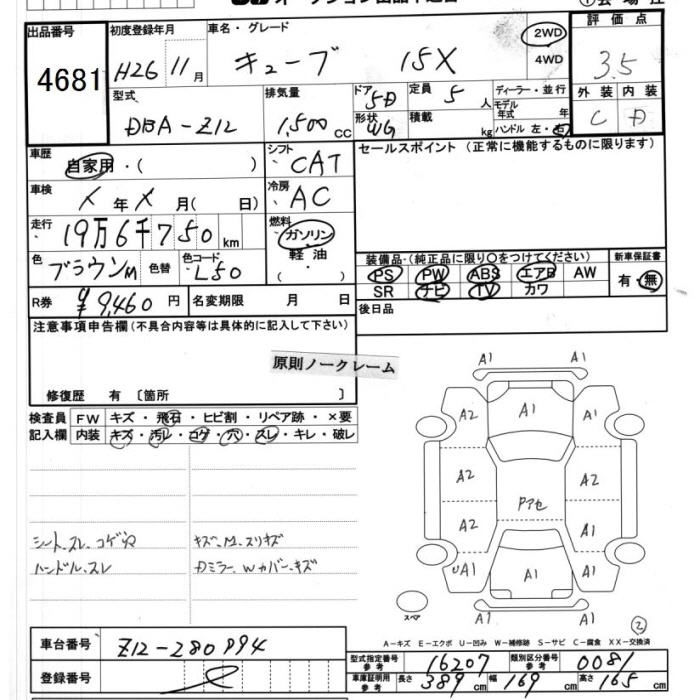 出品番号
4681
初度登録年月
H26 11月
車名・グレード
キューブ 15X
2WD
4WD
評価点
3.5
外装 内装
C D
型式
DBA-Z12
排気量
1,500cc
ドア
5D
形状
WG
定員
5人
積載
kg
ディーラー・並行
モデル年式 年
ハンドル 左・右
車歴
自家用・( )
車検
年 月( 日)
走行
19万6千750km
色
ブラウンM
色替
色コード
L50
シフト
CAT
冷房
AC
燃料
ガソリン
軽油
( )
セールスポイント (正常に機能するものに限ります)
装備品・(純正品に限り○をつけてください)
PS PW ABS エアB AW
SR ナビ TV カワ
新車保証書
有・無
R券
¥9,460円
名変期限 月 日
後日品
注意事項申告欄(不具合内容等は具体的に記入して下さい)
原則ノークレーム
修復歴 有 〔箇所 〕
検査員記入欄
FW キズ・飛石・ヒビ割・リペア跡・×要
内装 キズ・汚レ・コゲ・穴・スレ・キレ・破レ
シート、スレ、コゲ穴
ハンドル、スレ
キズ、M、スリキズ
Dミラー、Wカバー、キズ
A1 A1
A2 A1 A1
A2 A2
Pアセ
A2 A1
UA1 A1 A1
A1 A1
スペア
2
A-キズ E-エクボ U-凹み W-補修跡 S-サビ C-腐食 XX-交換済
車台番号
Z12-280894
登録番号
型式指定番号 参考
16207
類別区分番号 参考
0081
車庫証明用 参考
長さ 389cm 幅 169cm 高さ 165cm